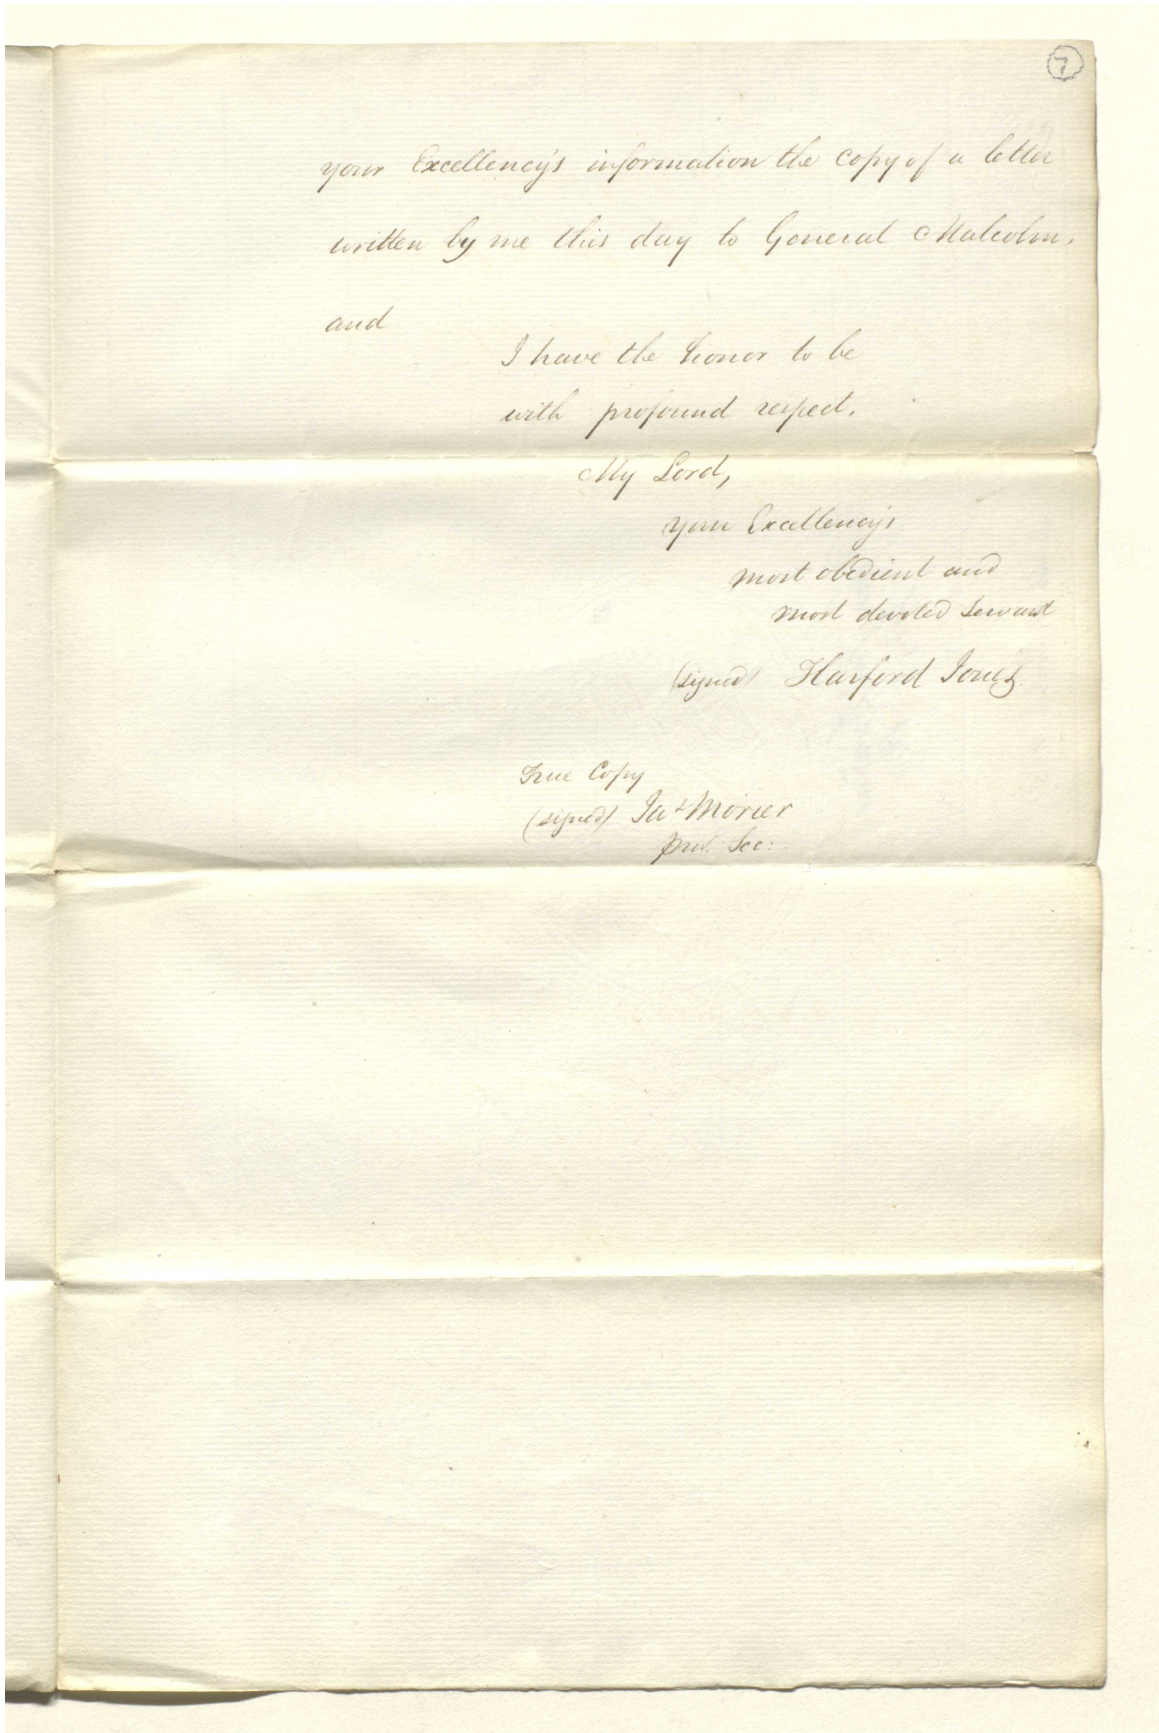 7
your Excellency's information the copy of a letter
written by me this day to General Malcolm.
and
I have the honor to be
with profound respect.
My Lord,
your Excellency's
most obedient and
most devoted Servant
(signed) Harford Jones
True Copy
(signed) Jas Morier
priv. Sec: